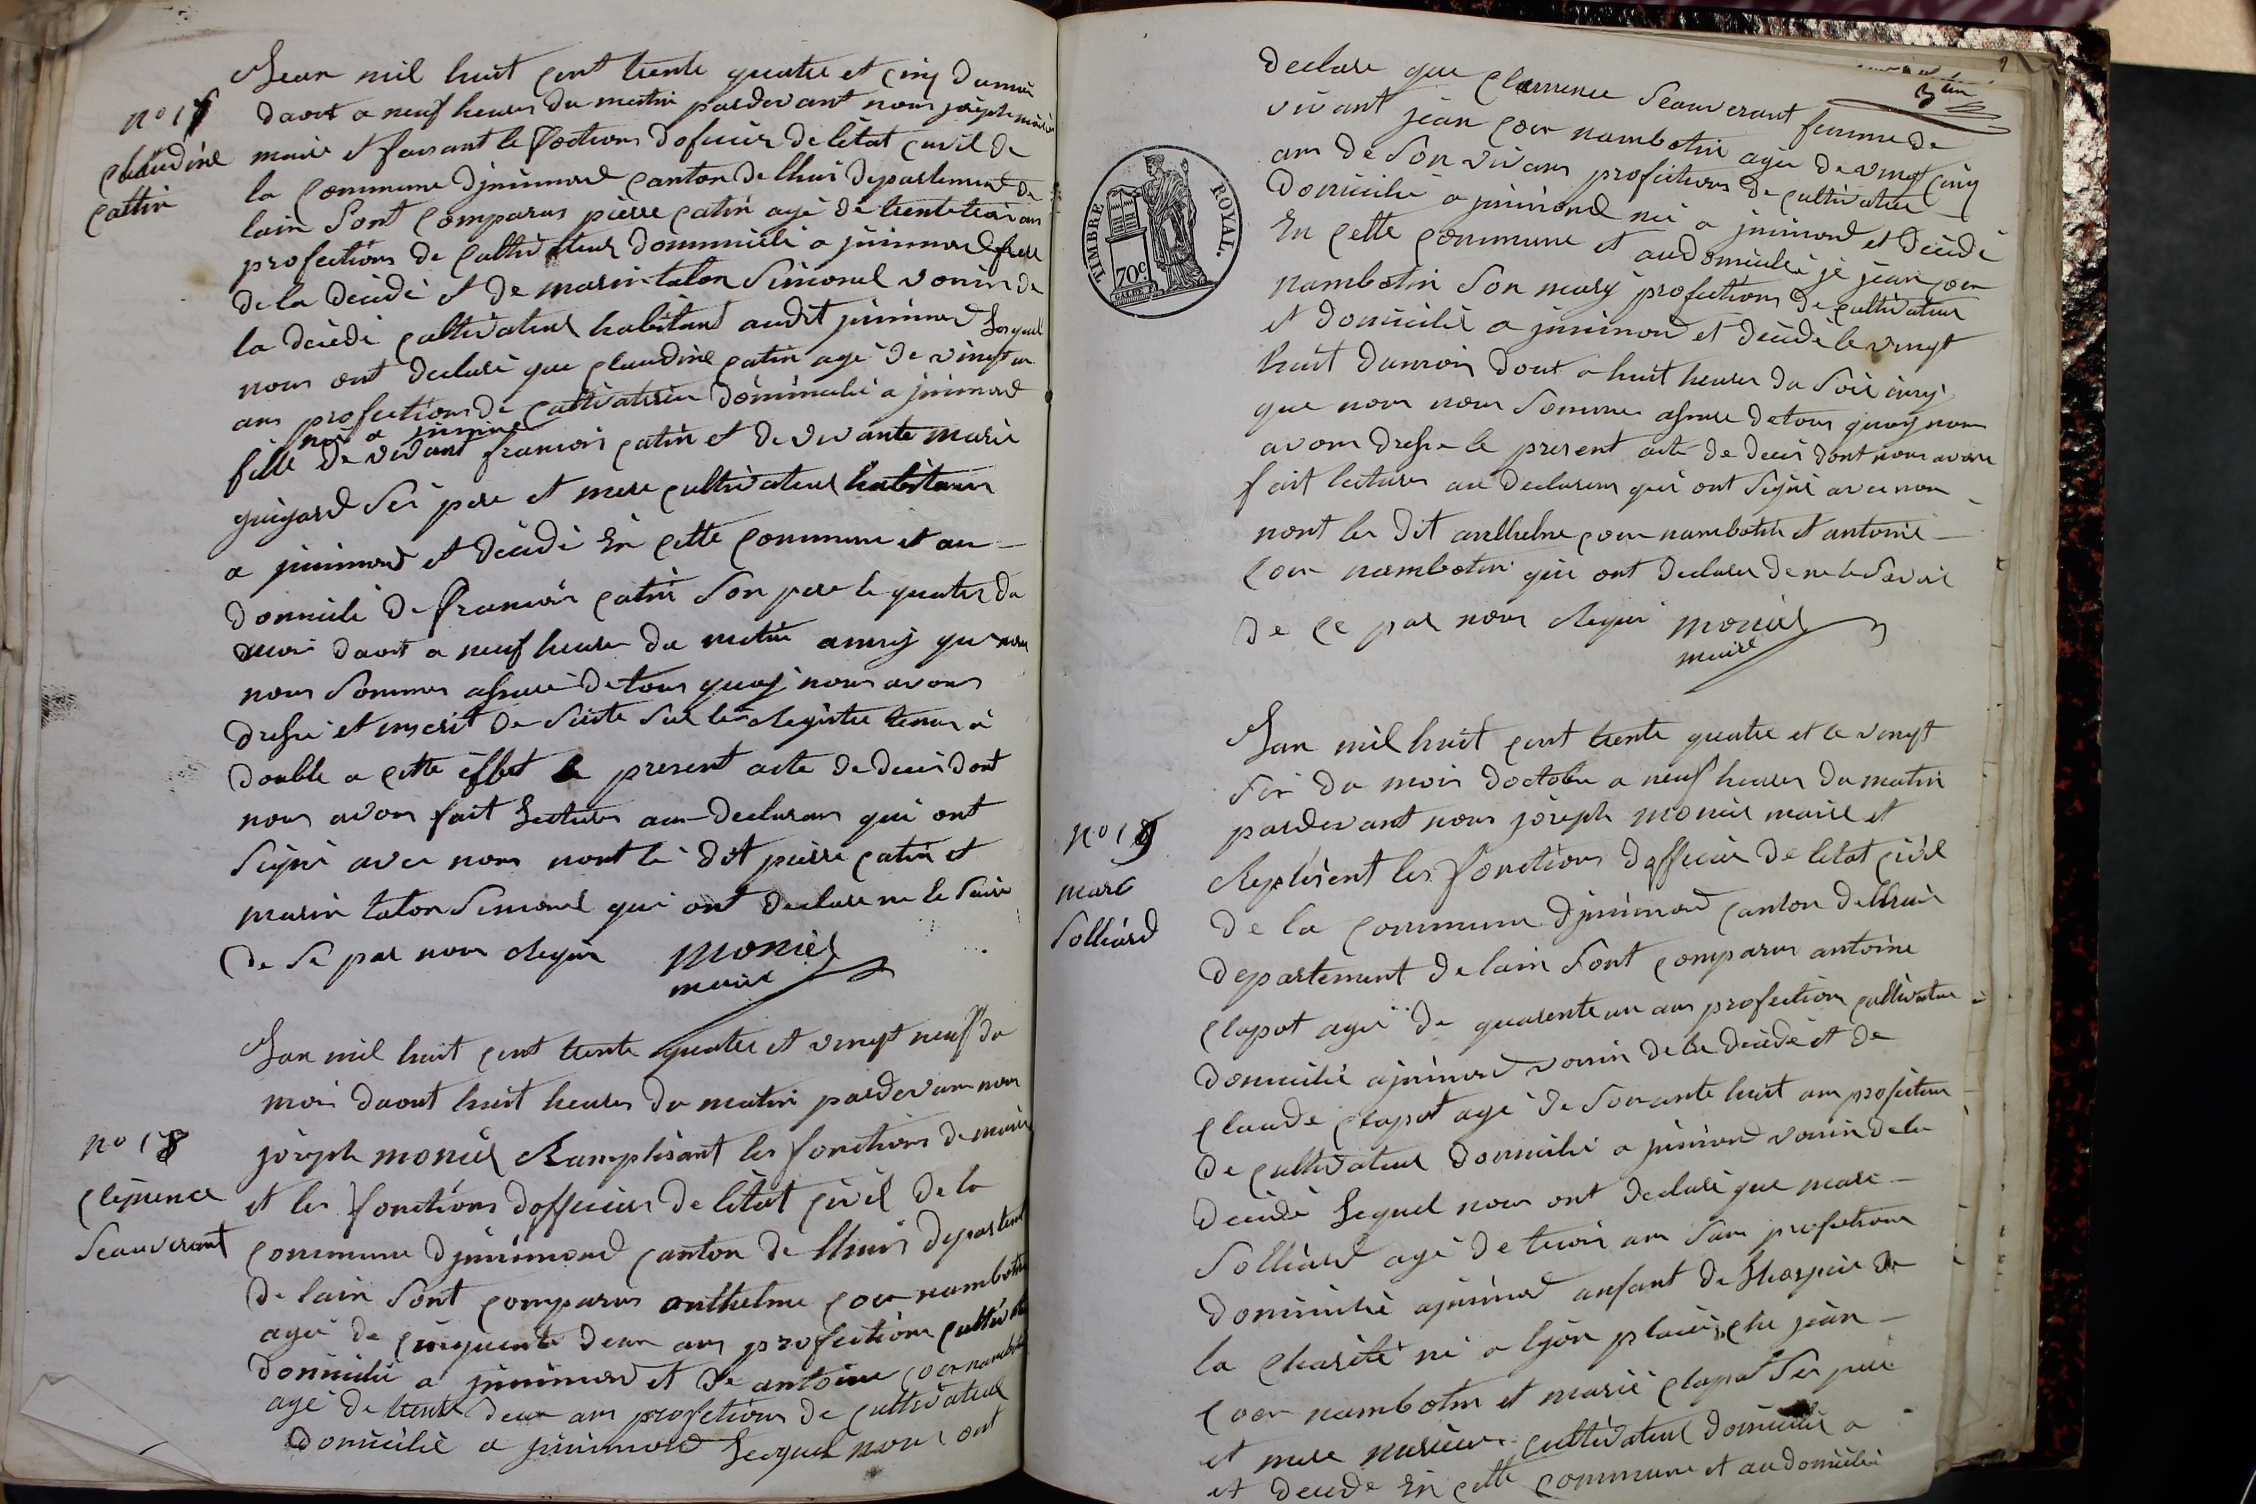 Jean mil huit cent trente quatre et cinq du moi
n° 17
claudine
cattin
daout a neuf heures du matin pardevant nous joseph monier
maire et faisant le foctions doficier de létat civil de
la commune djnimond canton de lhui departement de
lain sont comparus pierre catin agé de trente trois ans
profections de cultivateur dommicilié a jnimond frere
de la décédé et de marin talon simond voisin de
la décédé cultivateur habitant audit jnimond lesquel
nous ont declaré que claudine catin agé de vingt un
ans profections de cultivatrice domicilié a jnimond
né a jnimond
fille de vivant francois catin et de vivante marie
guigard ses pere et mere cultivateur habitans
a jnimond et décédé En cette commune et au
domicile de francois catin son pere le quatre du
moi daout a neuf heures du matin ainsij que nous
nous sommes assuré de tous quoij nous avons
dressé et inscrit de suite sur les Registre tenus à
double a cette éffet le present acte de deces dont
nous avons fait lecture aux declarans qui ont
signé avec nous nont lé dit pierre catin et
marin talon simond qui ont declaré ne le savoir
de se par nous Requis monier
maire
Jan mil huit cent trente quatre et vingt neuf du
mois daout huit heures du matin pardevant nous
n° 18
clémence
seauverant
joseph monier Ramplisant les fonctions de maire
et les fonctions dofficier de létat civil de la
commune djnimond canton de lhuis departement
de lain sont comparus anthelme coer nambotin
agé de cinquante deux ans profections cultivateur
domicilié a jnimond et de antoine coer nambotin
agé de trente deux ans profections de cultivateur
domicilié a jnimond lesquel nous ont
declare que clemence seauverant femme de
vivant jean coer nambotin agée de vingt cinq
ans de son vivans profections de cultivateur
domicilié a jnimond né a jnimond et décédé
En cette commune et au domicile jé jean coer
nambotin son marij profections de cultivateur
et domicilié a jnimond et décédé le vingt
huit du mois dout a huit heures du soir ainsij
que nous nous sommes assure de tous quoij nous
avons dresse le present acte de deces dont nous avons
fait lecture au declarans qui ont signé avec nous
nont les dit anthelme coer nambotin et antoine
coer nambotin qui ont declarer de ne le savoir
de ce par nous Requis monier
maire
TIMBRE ROYAL.
70c.
Jan mil huit cent trente quatre et le vingt
six du mois doctobre a neuf heures du matin
pardevant nous joseph monier maire et
n° 19
marc
solliard
Replisent les fonctions dofficier de létat civil
de la commune djnimond canton de lhuis
departement de lain sont comparus antoine
clapot agé de quarente un ans profection cultivateur
domicilié ajnimond voisin de la décédé et de
claude clapot agé de soixante huit ans profections
de cultivateur domicilié a jnimond voisin de la
décédé lequel nous ont declaré que marc
solliard agé de trois ans sans profections
domicilié ajnimond anfant de lhospice de
la charité né a lyon placé che jean
coer nambotin et marie clapot ses pere
et mere nuricier cultivateur domicilié a
et decede En cette commune et au domicilié